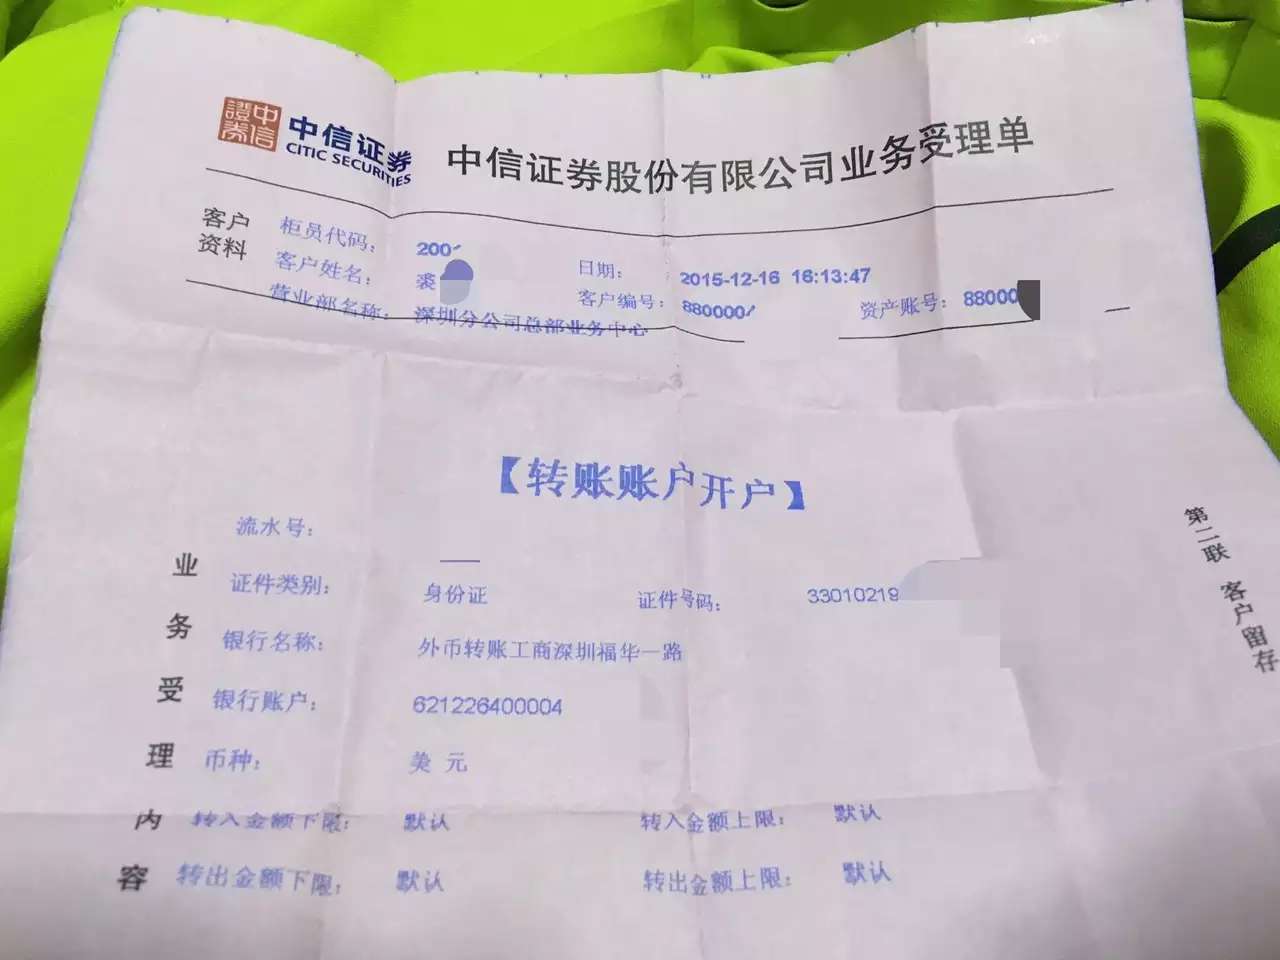 中信
證券
中信证券
CITIC SECURITIES
中信证券股份有限公司业务受理单
客户资料
柜员代码： 200
日期： 2015-12-16 16:13:47
客户姓名： 裘
客户编号： 880000
资产账号： 88000
营业部名称： 深圳分公司总部业务中心
【转账账户开户】
业务受理内容
流水号：
证件类别： 身份证 证件号码： 33010219
银行名称： 外币转账工商深圳福华一路
银行账户： 621226400004
币种： 美元
转入金额下限： 默认 转入金额上限： 默认
转出金额下限： 默认 转出金额上限： 默认
第二联 客户留存